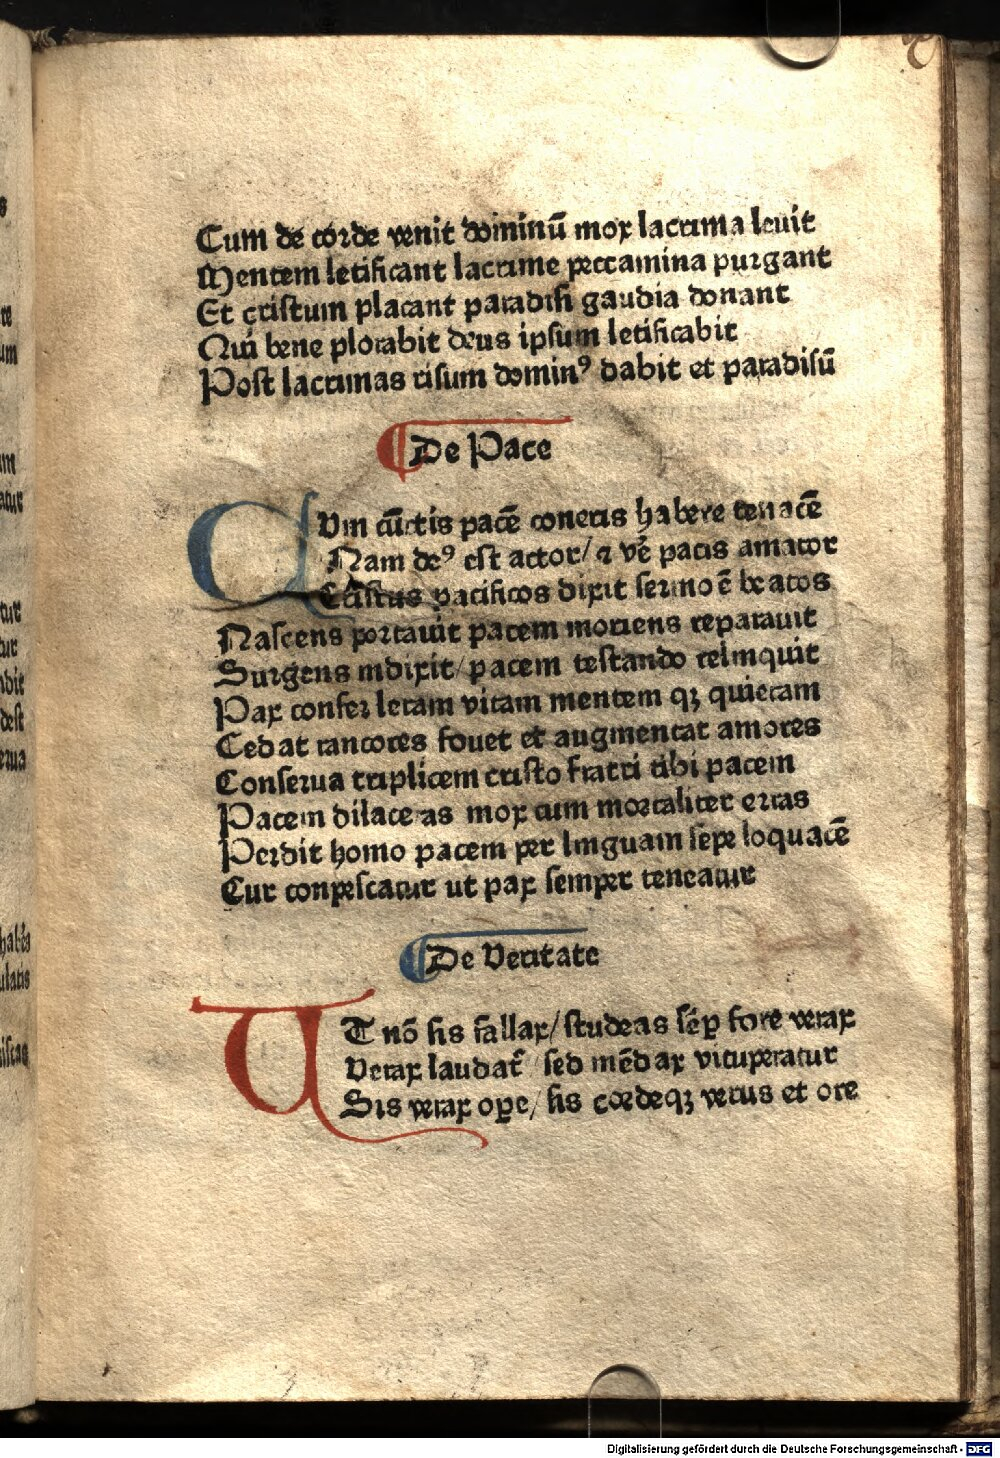 Cum de corde venit dominū mox lacrima leuit
Mentem letificant lacrime peccamina purgant
Et cristum placant paradisi gaudia donant
Qui bene plorabit deus ipsum letificabit
Post lacrimas risum dominꝰ dabit et paradisū
De Pace
CVm cūctis pacē coneris habere tenacē
Nam deꝰ est actor/ ⁊ vē pacis amator
Cristus pacificos dixit sermoē beatos
Nascens portauit pacem moriens reparauit
Surgens indixit/ pacem testando relinquit
Pax confert letam vitam mentem qꝫ quietam
Cedat rancores fouet et augmentat amores
Conserua triplicem cristo fratri tibi pacem
Pacem dilaceras mox cum mortaliter erras
Perdit homo pacem per linguam sepe loquacē
Cur conpescatur ut pax semper teneatur
De Veritate
UT nō sis fallax/ studeas sēꝑ fore verax
Verax laudat᷑ / sed mēdax vituperatur
Sis verax oꝑe/ sis cordeqꝫ verus et ore
habēs
Digitalisierung gefördert durch die Deutsche Forschungsgemeinschaft - DFG